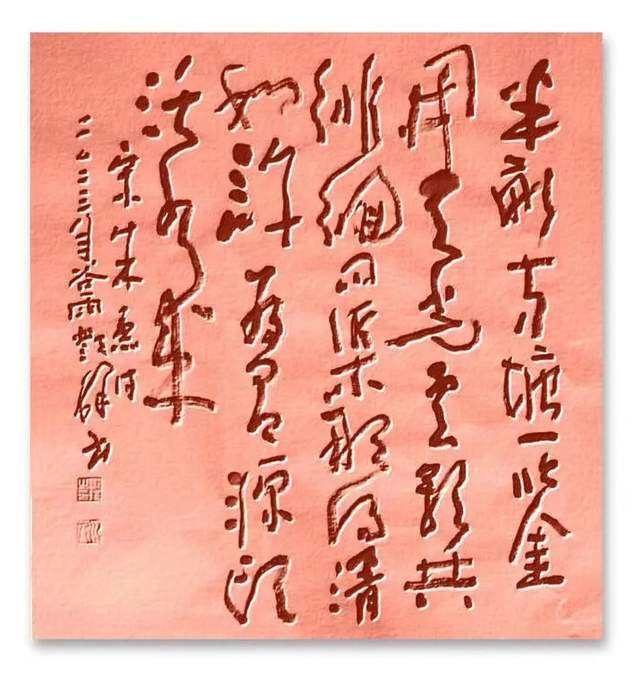 半畝方塘一鑒
開天光雲影共
徘徊問渠那得清
如許為有源頭
活水來
宋朱熹詩
二〇二三年谷雨 书